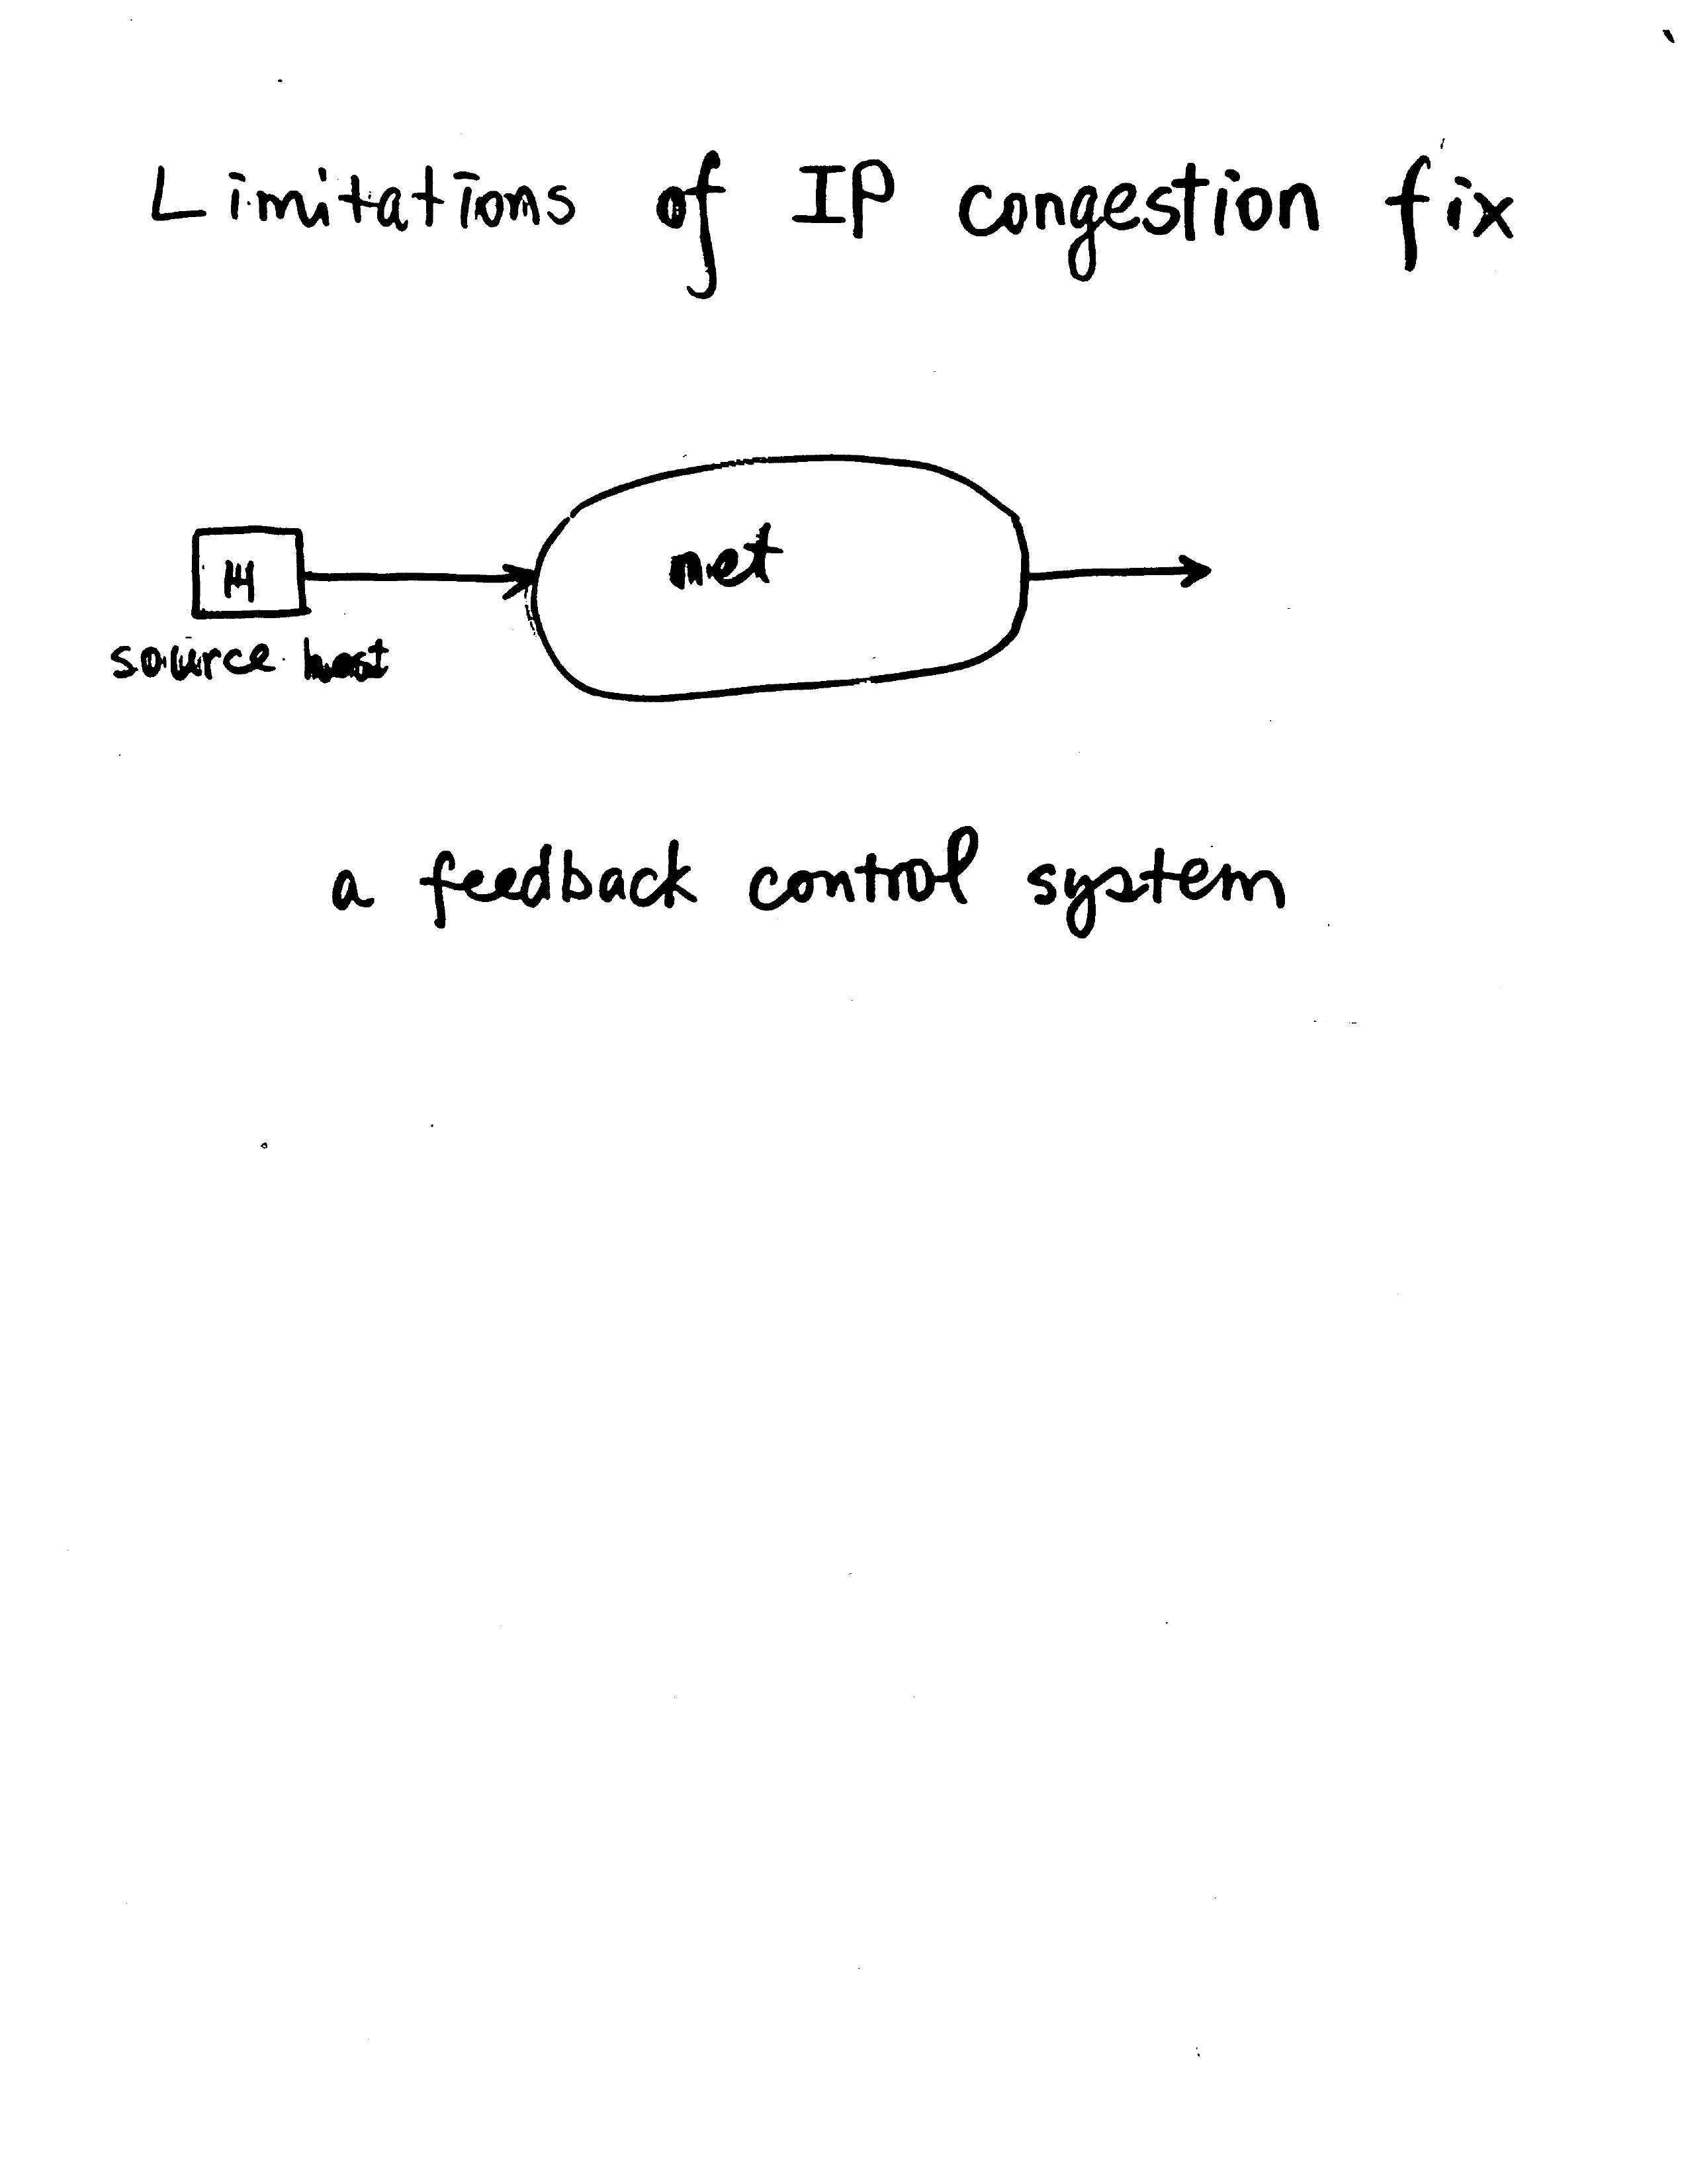 Limitations of IP congestion fix
net
H
source host
a feedback control system